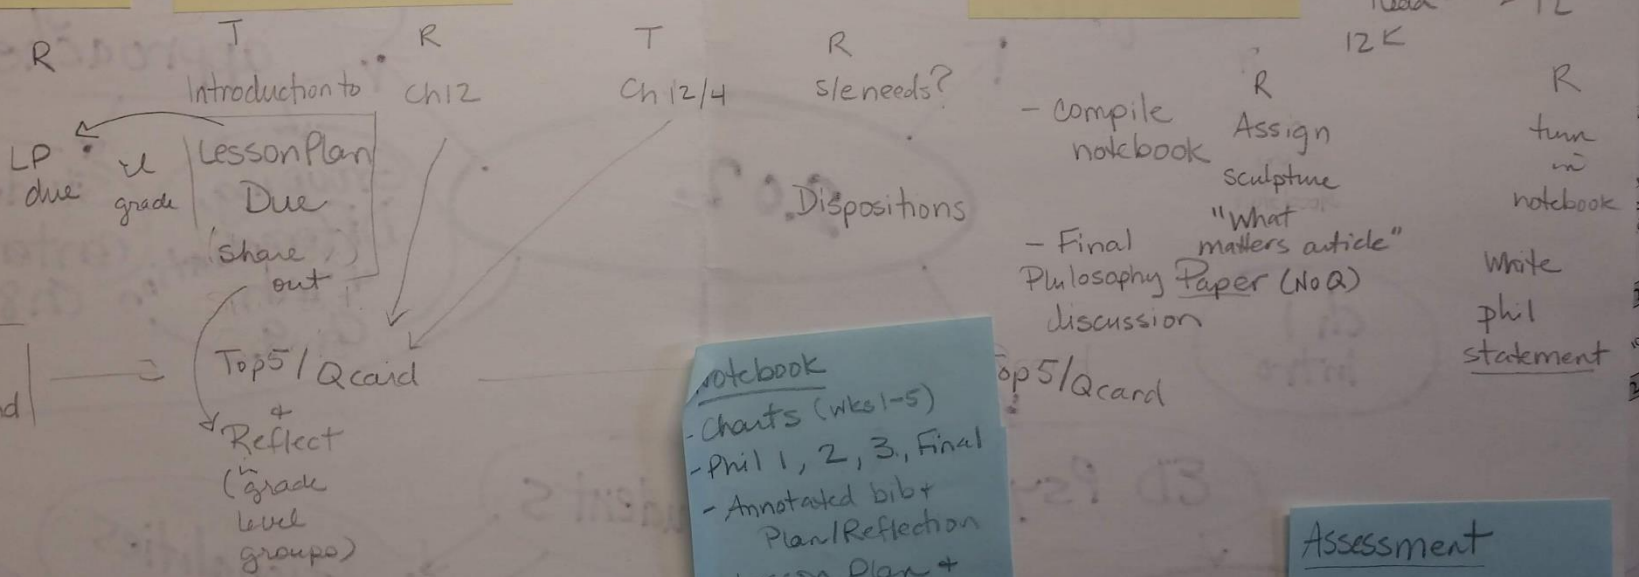 R
LP
due
grade
T
Introduction to
Lesson Plan
Due
(share
out
Top5/Qcard
+
Reflect
(grade
level
groups)
R
Ch12
T
Ch 12/4
R
s/e needs?
Dispositions
Notebook
- Charts (wks 1-5)
- Phil 1, 2, 3, Final
- Annotated bib +
Plan/Reflection
Plan +
- Compile
notebook
- Final
Philosophy Paper (No Q)
discussion
Top 5/Qcard
12 K
R
Assign
sculpture
"What
matters article"
R
turn
in
notebook
White
phil
statement
Assessment